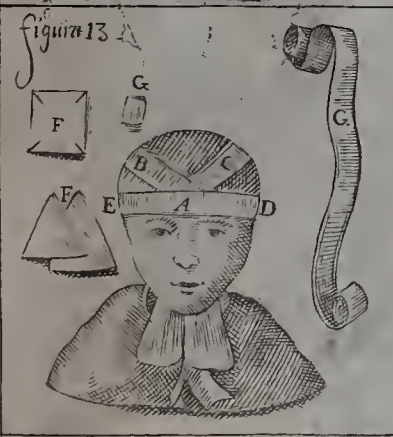 figura 13
G
F
G.
B
C
F
E
A
D